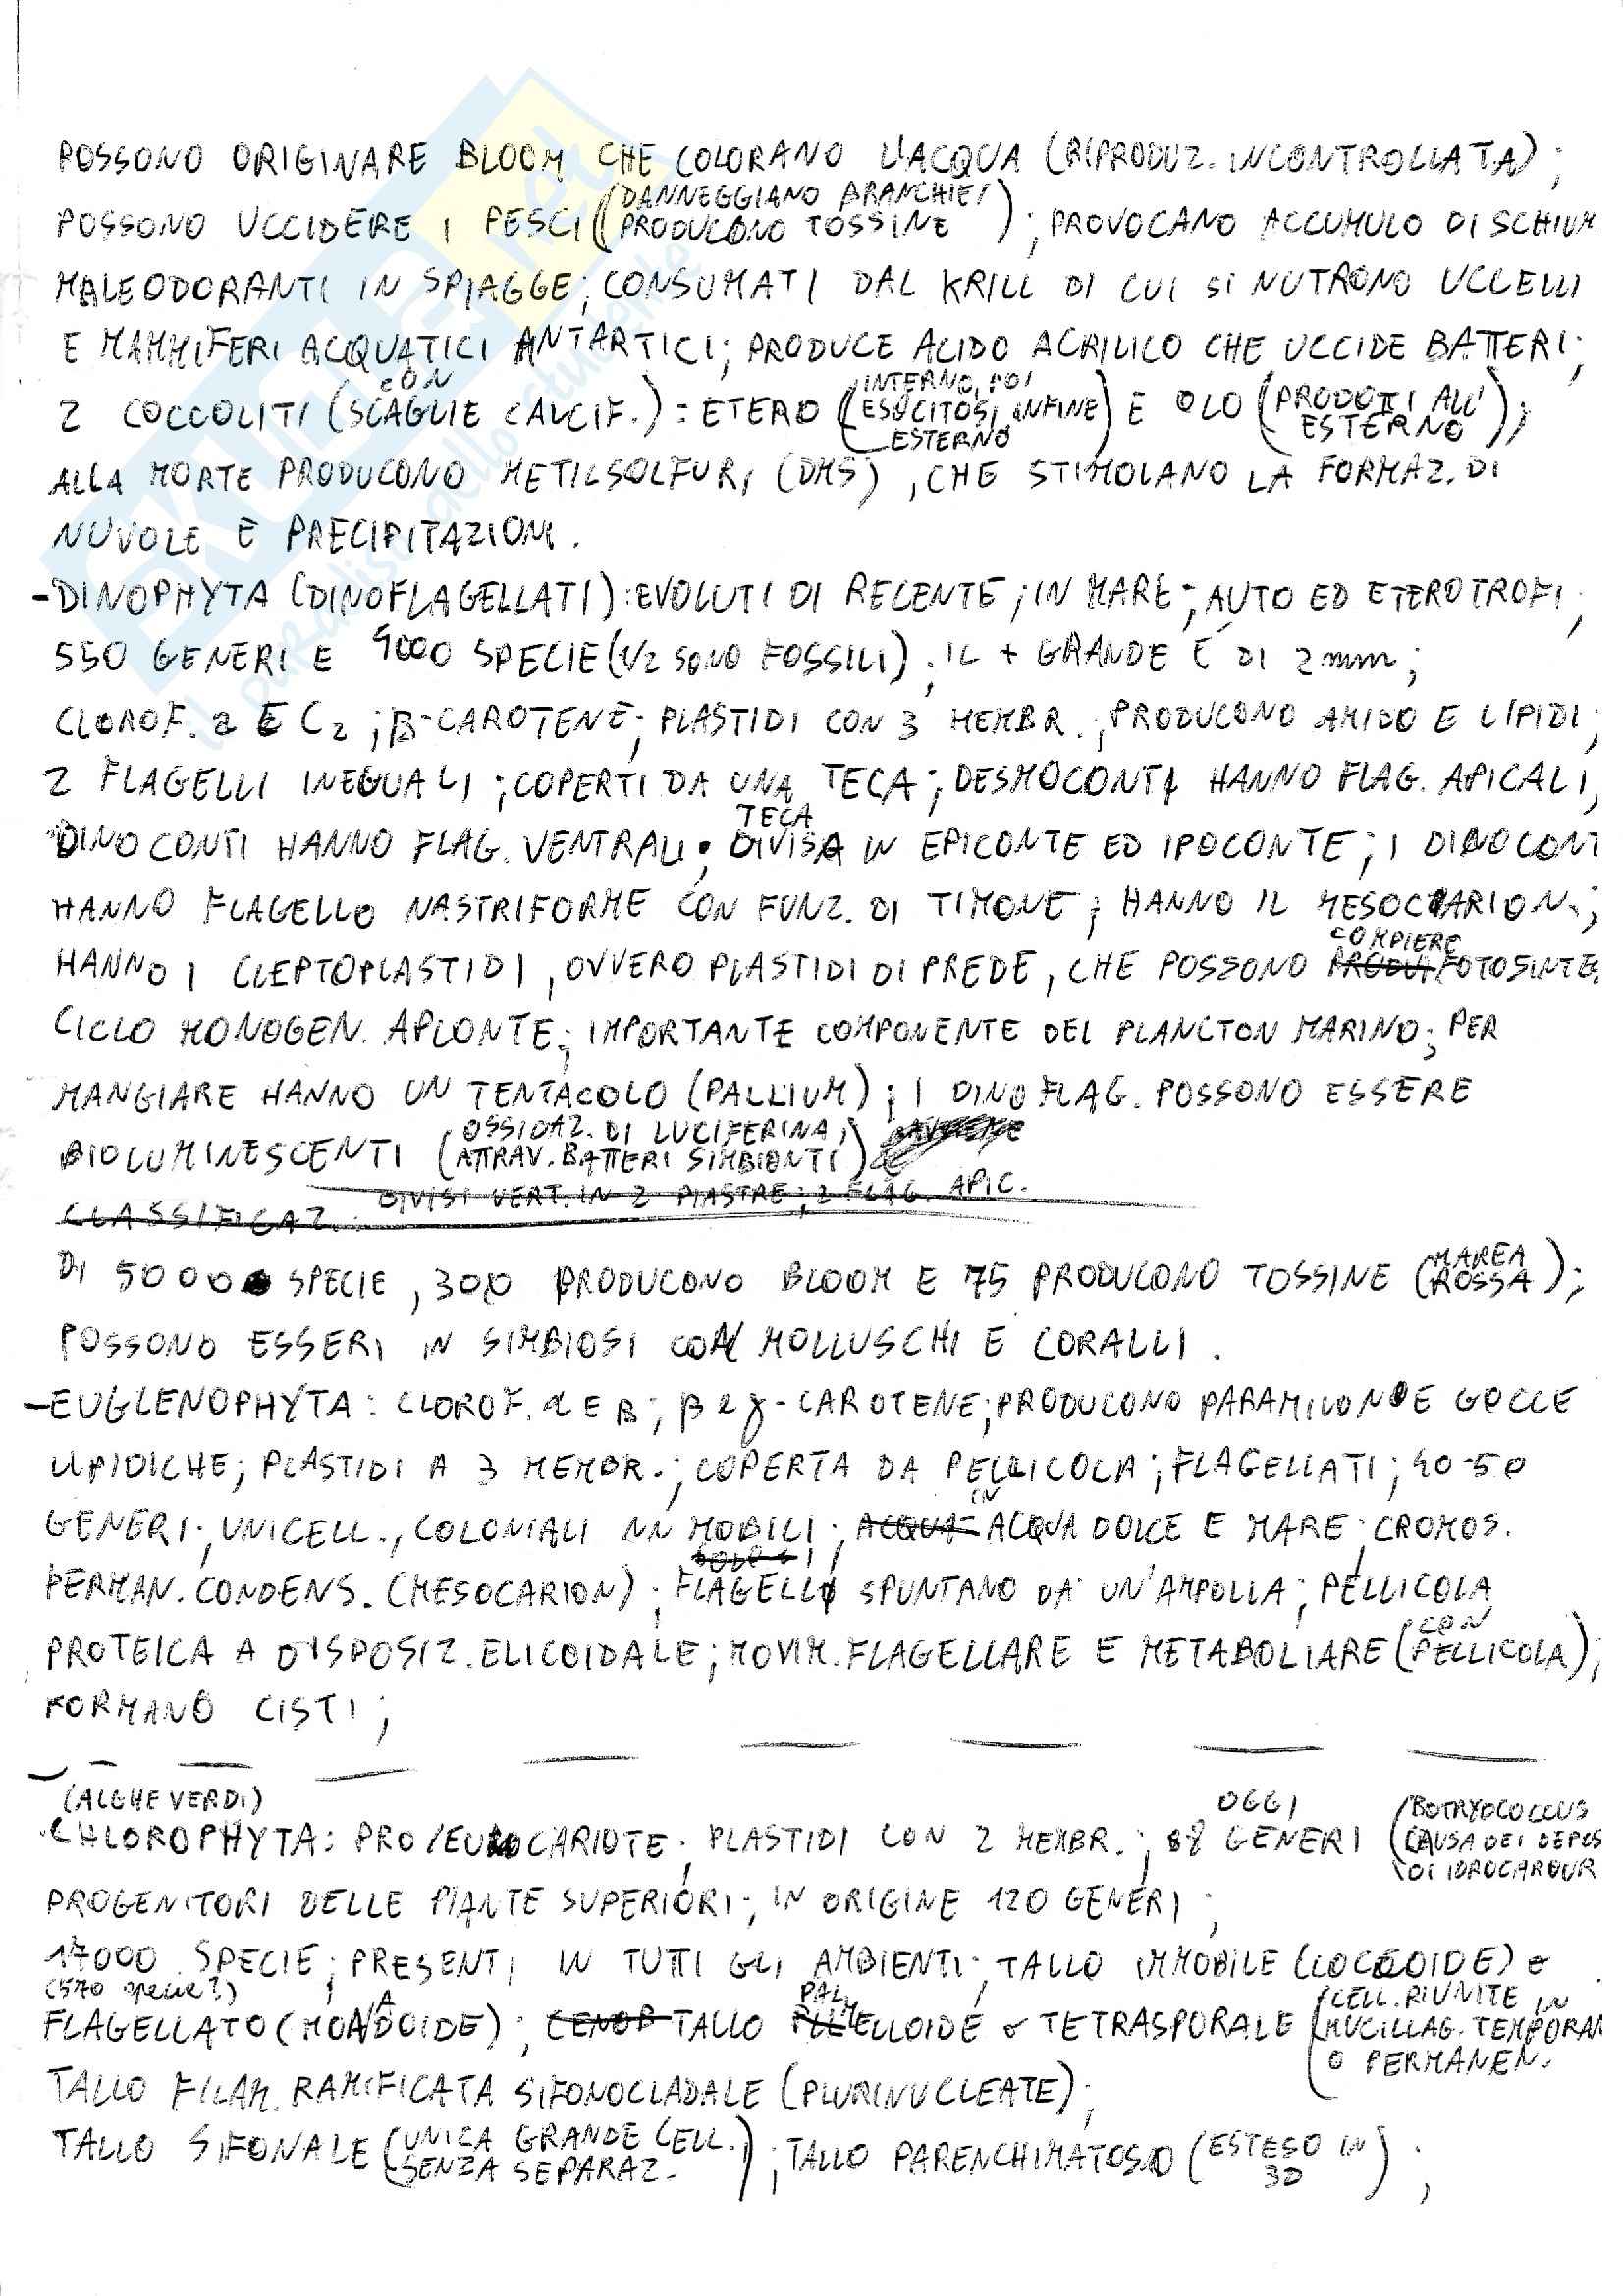 POSSONO ORIGINARE BLOOM CHE COLORANO L'ACQUA (RIPRODUZ. INCONTROLLATA);
POSSONO UCCIDERE I PESCI (DANNEGGIANO BRANCHIE/
PRODUCONO TOSSINE); PROVOCANO ACCUMULO DI SCHIUM
MALEODORANTI IN SPIAGGE; CONSUMATI DAL KRILL DI CUI SI NUTRONO UCCELLI
E MAMMIFERI ACQUATICI ANTARTICI; PRODUCE ACIDO ACRILICO CHE UCCIDE BATTERI;
2 COCCOLITI (SCAGLIE CON CALCIF.): ETERO (INTERNO, POI
ESOCITOSI, INFINE
ESTERNO) E OLO (PRODOTTI ALL'
ESTERNO);
ALLA MORTE PRODUCONO METILSOLFURI (DMS), CHE STIMOLANO LA FORMAZ. DI
NUVOLE E PRECIPITAZIONI.
-DINOPHYTA (DINOFLAGELLATI): EVOLUTI DI RECENTE; IN MARE; AUTO ED ETEROTROFI;
550 GENERI E 4000 SPECIE (1/2 SONO FOSSILI); IL + GRANDE È DI 2 mm;
CLOROF. a E C2; β-CAROTENE; PLASTIDI CON 3 MEMBR.; PRODUCONO AMIDO E LIPIDI;
2 FLAGELLI INEGUALI; COPERTI DA UNA TECA; DESMOCONTI HANNO FLAG. APICALI,
DINOCONTI HANNO FLAG. VENTRALI; TECA DIVISA IN EPICONTE ED IPOCONTE; I DINOCONT
HANNO FLAGELLO NASTRIFORME CON FUNZ. DI TIMONE; HANNO IL MESOCARION;
HANNO I CLEPTOPLASTIDI, OVVERO PLASTIDI DI PREDE, CHE POSSONO COMPIERE FOTOSINTE
CICLO MONOGEN. APLONTE; IMPORTANTE COMPONENTE DEL PLANCTON MARINO; PER
MANGIARE HANNO UN TENTACOLO (PALLIUM); I DINOFLAG. POSSONO ESSERE
BIOLUMINESCENTI (OSSIDAZ. DI LUCIFERINA,
ATTRAV. BATTERI SIMBIONTI)
CLASSIFICAZ.: DIVISI VERT. IN 2 PIASTRE; 2 FLAG. APIC.
DI 5000 SPECIE, 300 PRODUCONO BLOOM E 75 PRODUCONO TOSSINE (MAREA
ROSSA);
POSSONO ESSERI IN SIMBIOSI CON MOLLUSCHI E CORALLI.
-EUGLENOPHYTA: CLOROF. a E B; β e γ-CAROTENE; PRODUCONO PARAMILON E GOCCE
LIPIDICHE; PLASTIDI A 3 MEMBR.; COPERTA DA PELLICOLA; FLAGELLATI; 40-50
GENERI; UNICELL., COLONIALI NN MOBILI; ACQUA IN ACQUA DOLCE E MARE; CROMOS.
PERMAN. CONDENS. (MESOCARION); FLAGELLI SPUNTANO DA UN'AMPOLLA; PELLICOLA
PROTEICA A DISPOSIZ. ELICOIDALE; MOVIM. FLAGELLARE E METABOLIARE (CON
PELLICOLA);
FORMANO CISTI;
(ALGHE VERDI)
CHLOROPHYTA: PRO/EUCARIOTE; PLASTIDI CON 2 MEMBR.; OGGI 88 GENERI (BOTRYOCOCCUS
CAUSA DEI DEPOS
DI IDROCARBUR
PROGENITORI DELLE PIANTE SUPERIORI; IN ORIGINE 120 GENERI;
17000 SPECIE; PRESENTI IN TUTTI GLI AMBIENTI; TALLO IMMOBILE (COCCOIDE) o
(570 specie?)
FLAGELLATO (MONADOIDE); CENOB TALLO PALMELLOIDE o TETRASPORALE (CELL. RIUNITE IN
MUCILLAG. TEMPORAN
O PERMANEN.
TALLO FILAM. RAMIFICATA SIFONOCLADALE (PLURINUCLEATE);
TALLO SIFONALE (UNICA GRANDE CELL.
SENZA SEPARAZ.); TALLO PARENCHIMATOSO (ESTESO IN
3D);